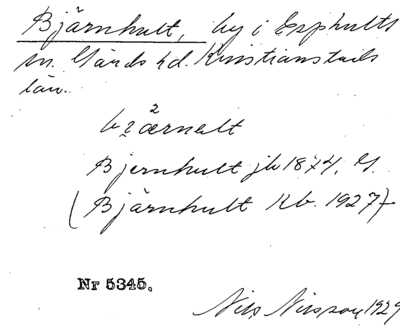 Bjärnhult, by i Esphults
sn. Gärds hd. Kristianstads
län.
2
bɪærnalt
Bjernhult jb 1874, G.
(Bjärnhult Kb. 1927)
Nr 5345.
Nils Nilsson, 1929